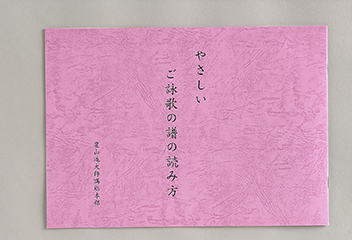 やさしい
ご詠歌の譜の読み方
霊山遍大師講総本部